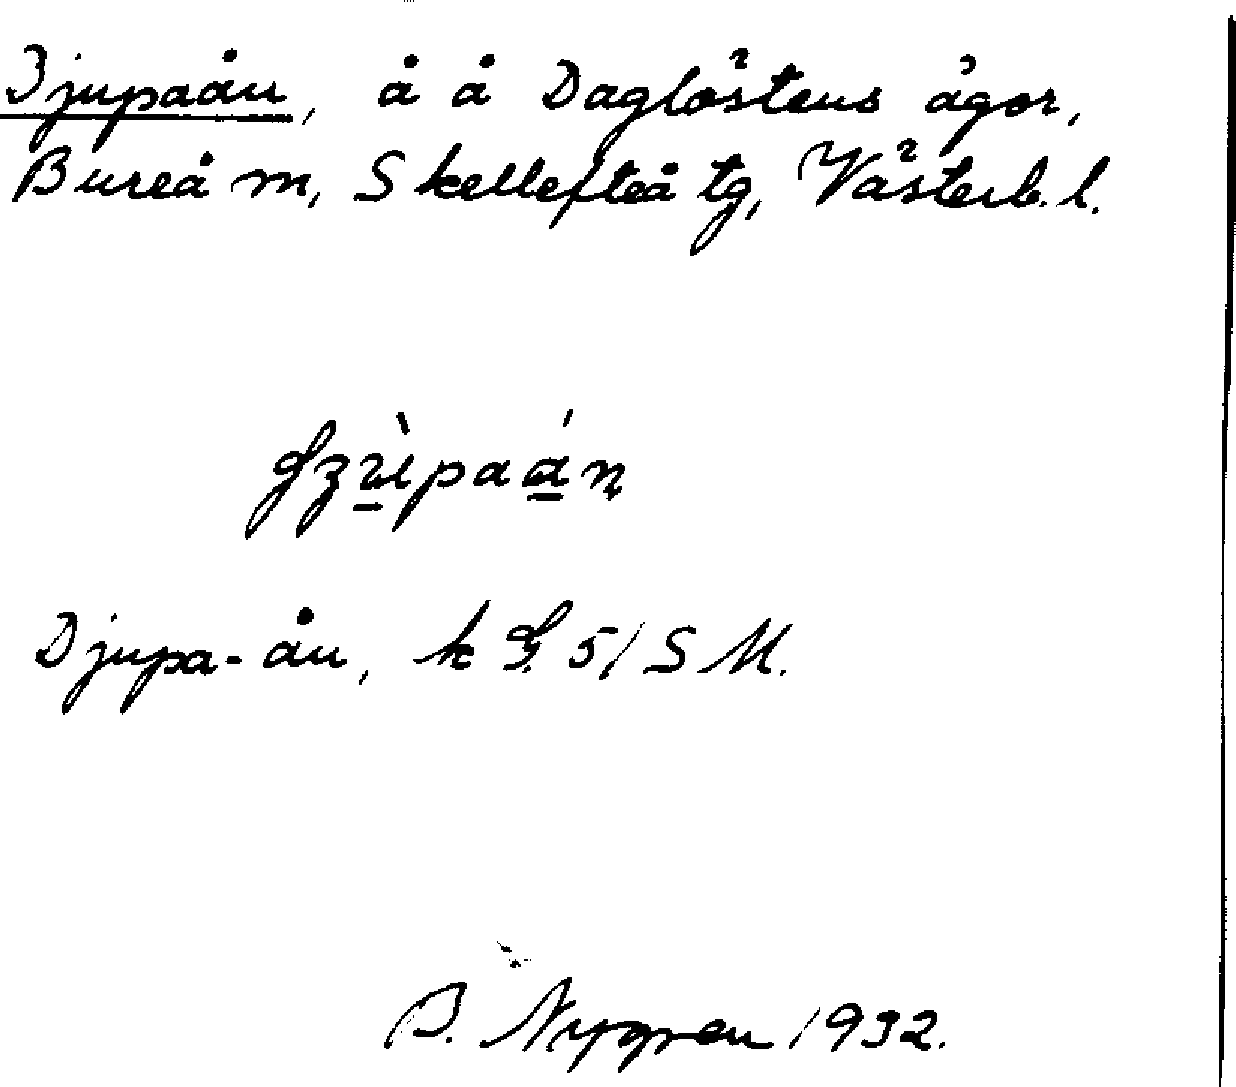 Djupaån, å å Daglöstens ägor,
Bureå m, Skellefteå tg, Västerb. l.
Djupa-ån, k G. 51 S M.
B. Nygren 1932.